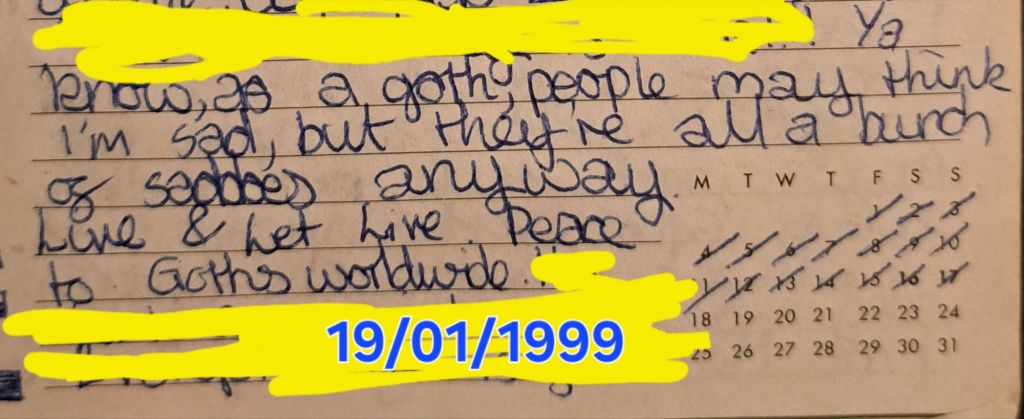 Ya
know, as a goth, people may think
I'm sad, but they're all a bunch
of saddoes anyway.
Live & Let Live. Peace
to Goths worldwide.!!
19/01/1999
M T W T F S S
1 2 3
4 5 6 7 8 9 10
11 12 13 14 15 16 17
18 19 20 21 22 23 24
25 26 27 28 29 30 31